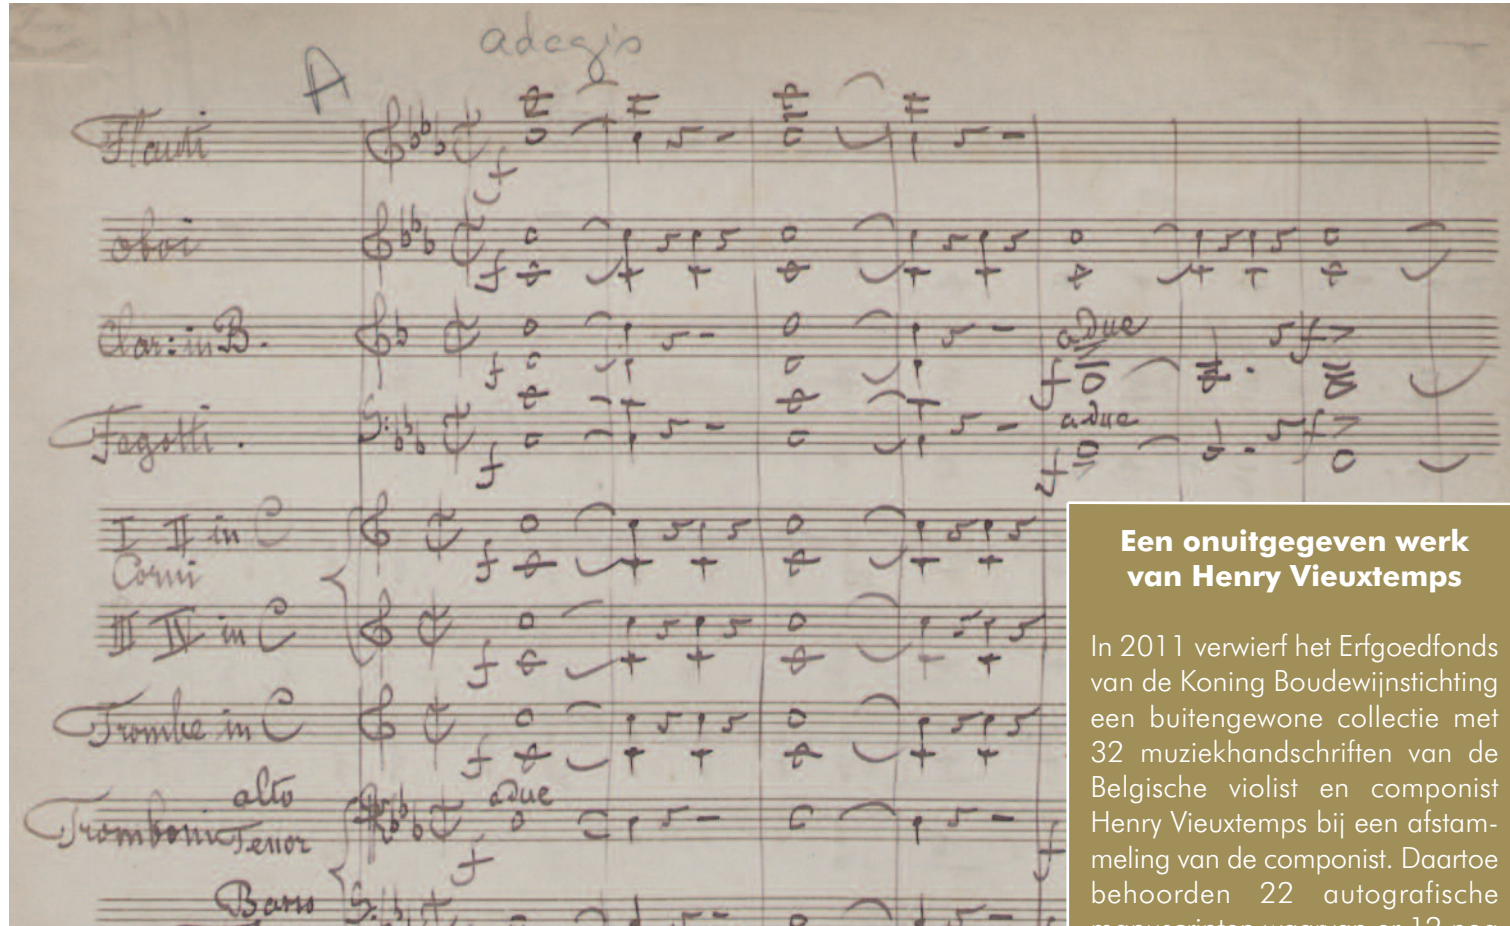 adagio
A
Flauti
f
oboi
f
Clar: in B.
f
a due
f
f
Fagotti.
f
a due
f
f
I II in C
Corni
f
III IV in C
f
Trombe in C
f
alto
Tromboni Tenor
a due
f
f
Basso
Een onuitgegeven werk
van Henry Vieuxtemps
In 2011 verwierf het Erfgoedfonds
van de Koning Boudewijnstichting
een buitengewone collectie met
32 muziekhandschriften van de
Belgische violist en componist
Henry Vieuxtemps bij een afstam-
meling van de componist. Daartoe
behoorden 22 autografische